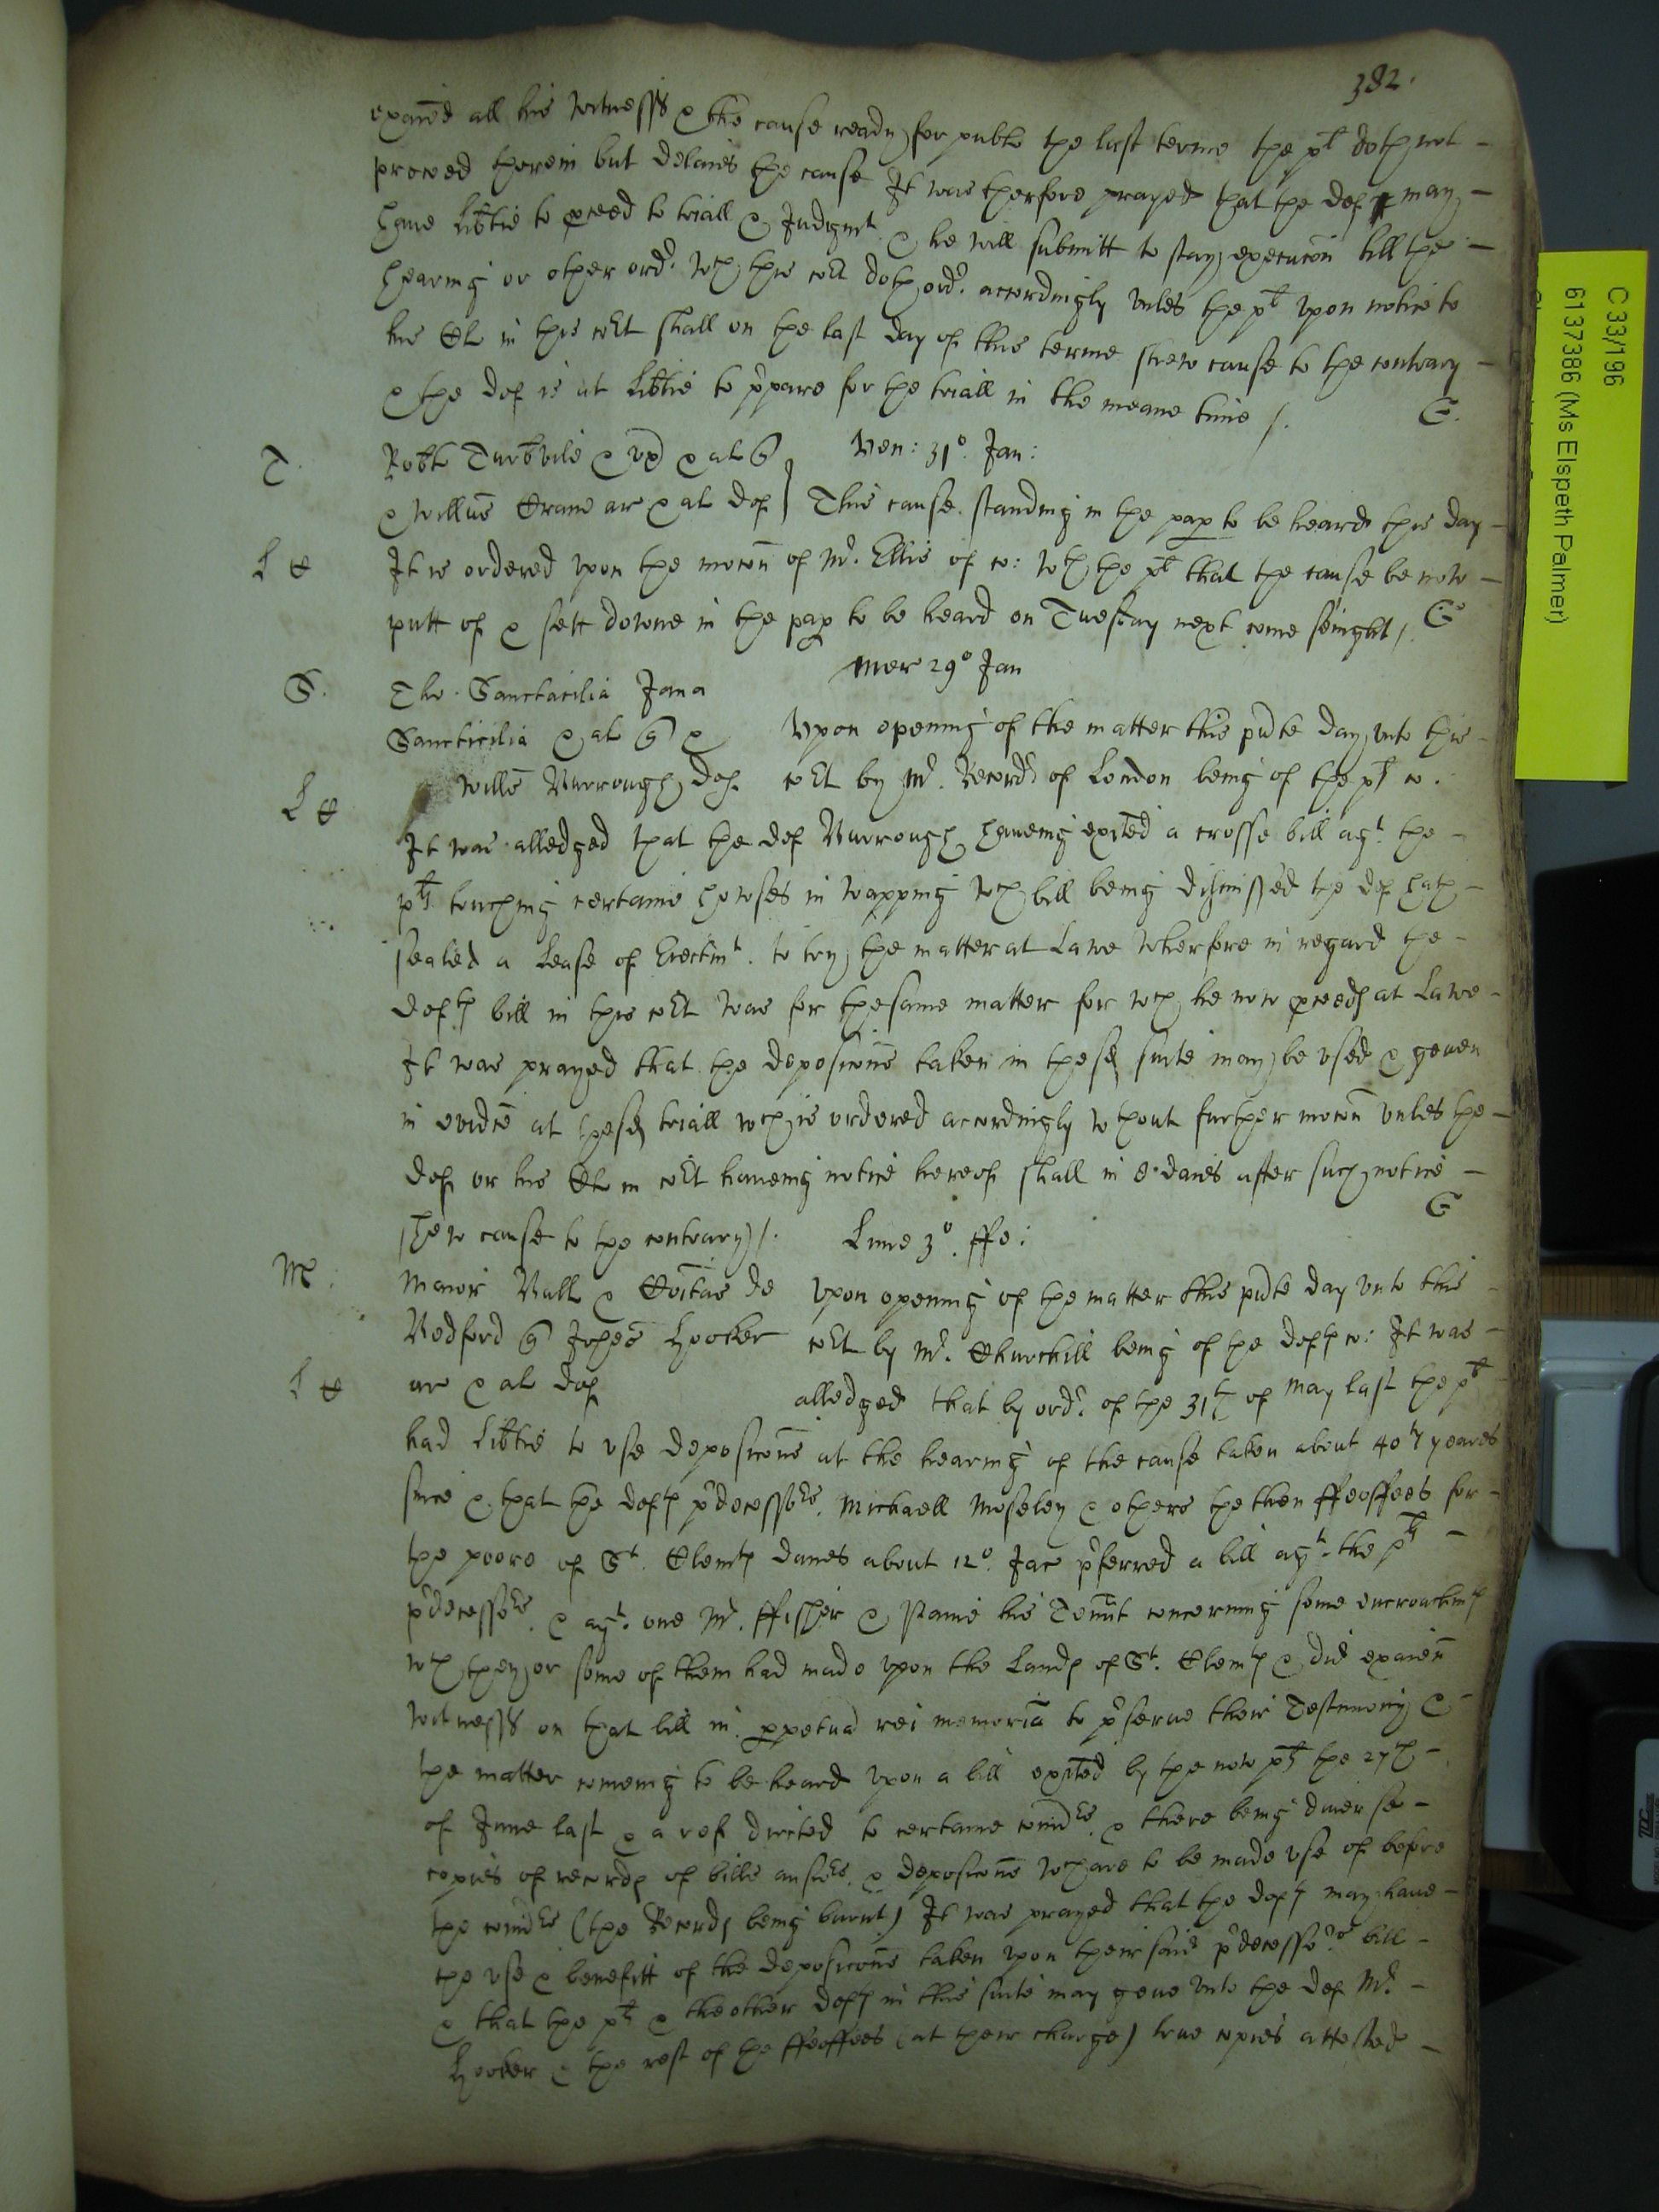 382.
exaīed all his witnesses & the cause ready for publ the last terme the plt doth not
proceed therein but delaies the cause It was therfore prayed that the def may
have libtie to pceed to triall & Judgmt & he will submitt to stay execucōn till the
hearing or other ordr. wch this cort doth ordr. accordingly unles the plt upon notice to
his Cl in this cort shall on the last day of this terme shew cause to the contrary
& the def is at libtie to ppare for the triall in the meane time /. G.
T. Robte Turbvile & ux & al Ven: 31o. Jan:
& Willus Crane ar & al def This cause standing in the pap to be heard this day
L C It is ordered upon the mocōn of Mr. Ellis of co: wth the plt that the cause be now
putt of & sett downe in the pap to be heard on Tuesday next come sēnight /. G
Mer 29o Jan
S. Tho. Sanctacilia Jana
Sancticilia & al Upon opening of the matter this pnte day unto this
Willō Burrough def. cort by Mr. Recordr of London being of the plts co.
L C It was alledged that the def Burrough haveing exited a crosse bill agt. the
plts touching certaine howses in Wapping wch bill being dismissed the def hath
sealed a Lease of Eiectmt. to try the matter at Lawe wherfore in regard the
defts bill in this cort was for the same matter for wch he now pceeds at Lawe
It was prayed that the deposicōns taken in the sd suite may be used & geven
in evidce at the sd triall wch is ordered accordingly wthout further mocōn unles the
def or his Cl in cort haveing notice hereof shall in 8 daies after such notice
shew cause to the contrary /. G
Lune 3o. ffe:
M. Maior Ball & Cōitas de Upon opening of the matter this pnte day unto this
Bedford Johēs Hooker cort by Mr. Churchill being of the defts co: It was
L C ar & al def alledged that by ordr. of the 31th of May last the plt
had libtie to use deposicōns at the hearing of the cause taken about 40ty yeares
since & that the defts pdecessors. Michaell Moseley & others the then ffeoffees for
the poore of St. Clemts danes about 12o. Jac pferred a bill agt. the plts
pdecessors. & agt. one Mr. ffisher & Paine his Tennt concerning some encroachmts
wch they or some of them had made upon the Lands of St. Clemts & did exaīen
witnesses on that bill in ppetuā rei memoriā to pserve their Testimony &
the matter comeing to be heard upon a bill exited by the now plts the 27th
of June last & a ref directed to certaine comrs. & there being diverse
copies of records of bills answrs. & deposicōns wch are to be made use of before
the comrs (the Records being burnt) It was prayed that the defts may have
the use & benefitt of the deposicōns taken upon their said pdecessors bill
& that the plts & the other defts in this suite may geve unto the def Mr.
Hooker & the rest of the ffeoffees (at their charge) true copies attested
C 33/196
6137386 (Ms Elspeth Palmer)